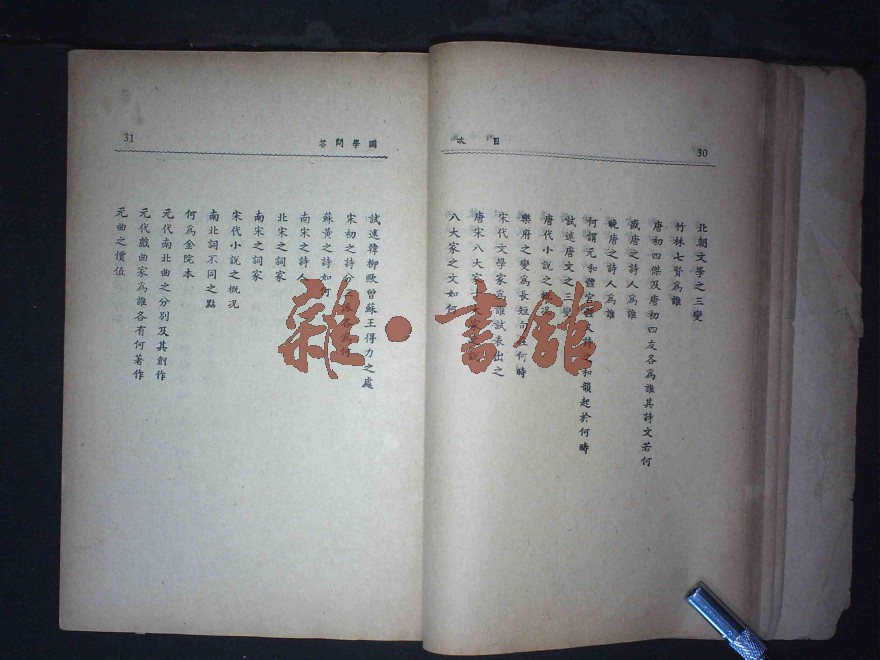 目次
30
北朝文學之三變
竹林七賢爲誰
唐初四傑及唐初四友各爲誰其詩文若何
盛唐之詩人爲誰
晚唐之詩人爲誰
何謂元和體宮 和韻起於何時
試述唐文之三變
唐代小說之概況
樂府之變爲長短句在何時
宋代文學家爲誰試表出之
唐宋八大家
八大家之文如何
國學問答
31
試述韓柳歐曾蘇王得力之處
宋初之詩分 派各爲何
蘇黃之詩如何
南宋之詩人
北宋之詞家
南宋之詞家
宋代小說之概况
南北詞不同之點
何爲金院本
元代南北曲之分別及其創作
元代戲曲家爲誰各有何著作
元曲之價值
雜·書館